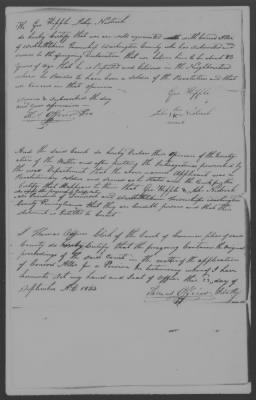 We Geo. Hipple John
do hereby Certify that we are well acquainted with
Township Washington County who has subscribed and
sworn to the foregoing Declaration that we believe him to be about 83
years of age that he is reputed and believed in the Neighborhood
where he resides to have been a soldier of the Revolution and that
we concur in that opinion
Sworn & subscribed the day
and year aforesaid
Geo. Hipple
his
John X
mark
Tho. Officer Pro
And the said Court do hereby Declare their Opinion of the
after the Matter and after putting the Interrogatories prescribed by
the War Department that the above named Applicant was a
Revolutionary soldier and served as he states and the Court
Certify that it appears to them that Geo. Hipple & John
are residents of
Washington
County Pennsylvania that they are credible persons and that their
statement is entitled to Credit
I Thomas Officer Clerk of the Court of Common pleas of said
County do hereby Certify that the foregoing contains the original
proceedings of the said Court in the matter of the application
of Conrod for a Pension In testimony whereof I have
hereunto set my hand and seal of office this day of
September A.D. 1833
Thomas Officer